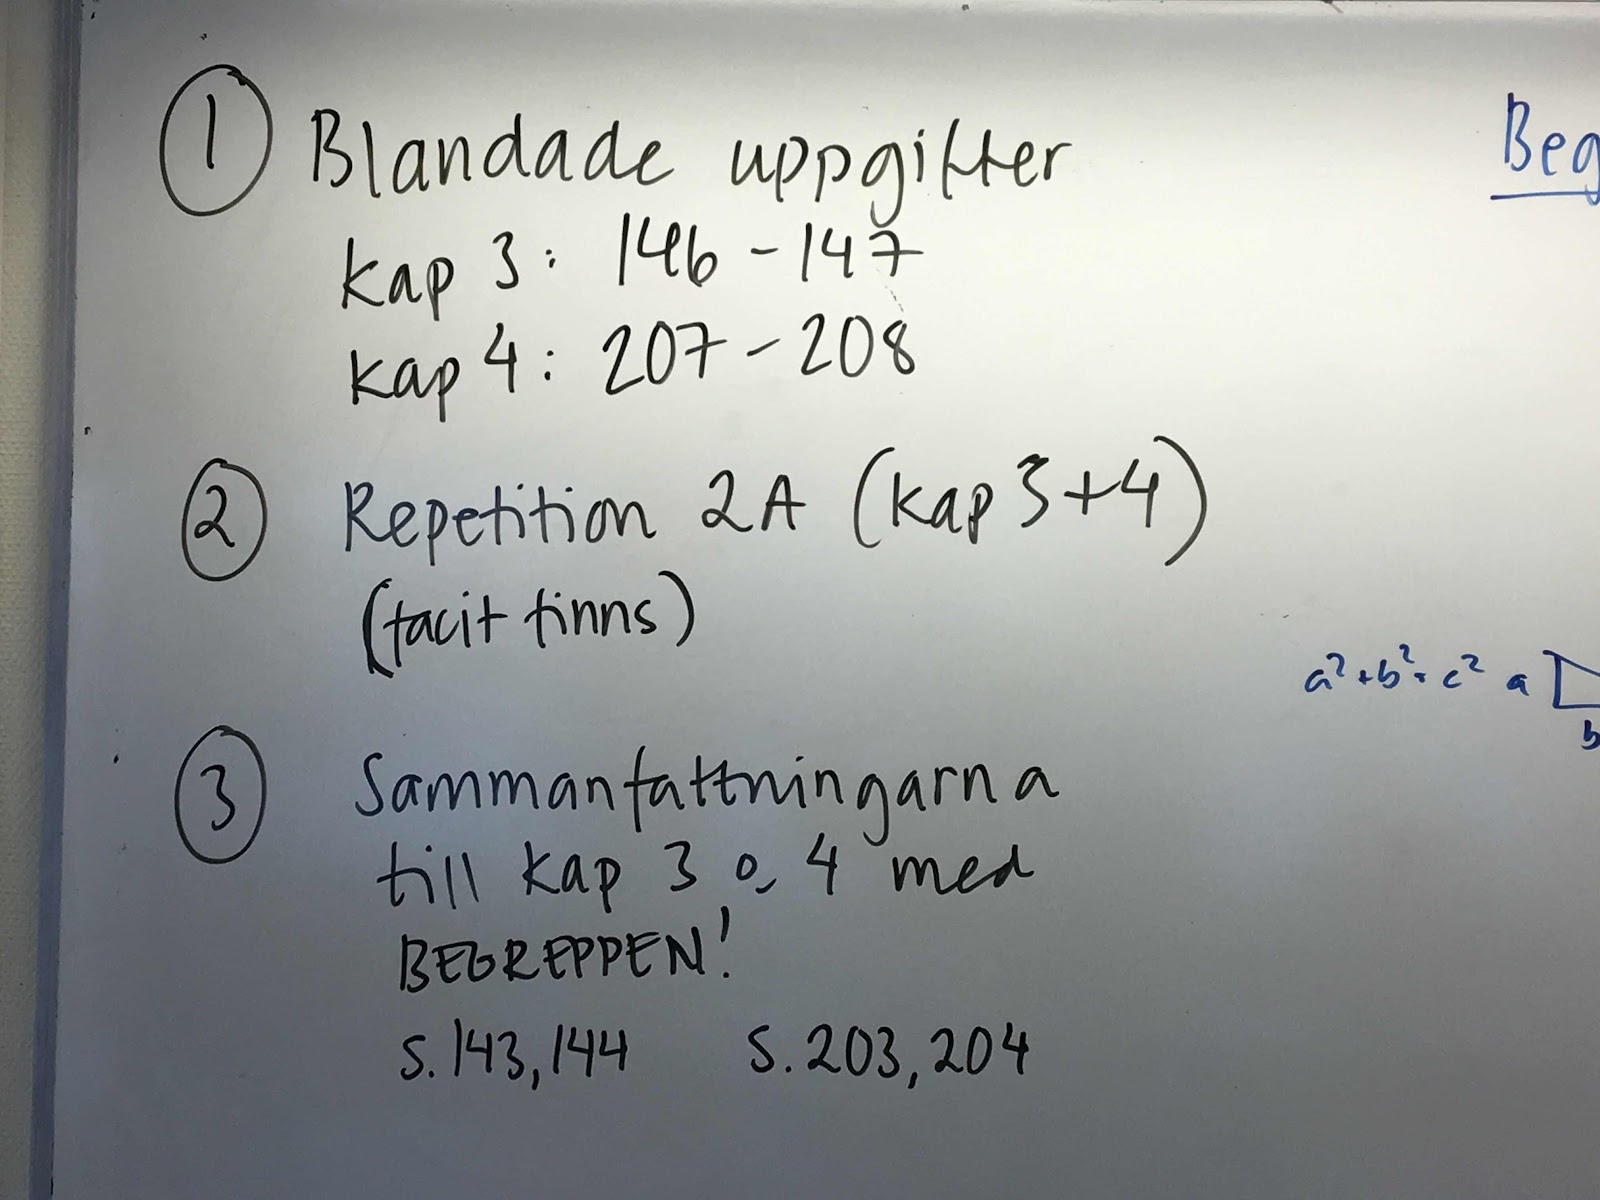 ① Blandade uppgifter
kap 3: 146 - 147
kap 4: 207 - 208
② Repetition 2A (kap 3+4)
(facit finns)
③ Sammanfattningarna
till kap 3 o 4 med
BEGREPPEN!
s. 143, 144 s. 203, 204
Beg
a²+b²=c² a
b